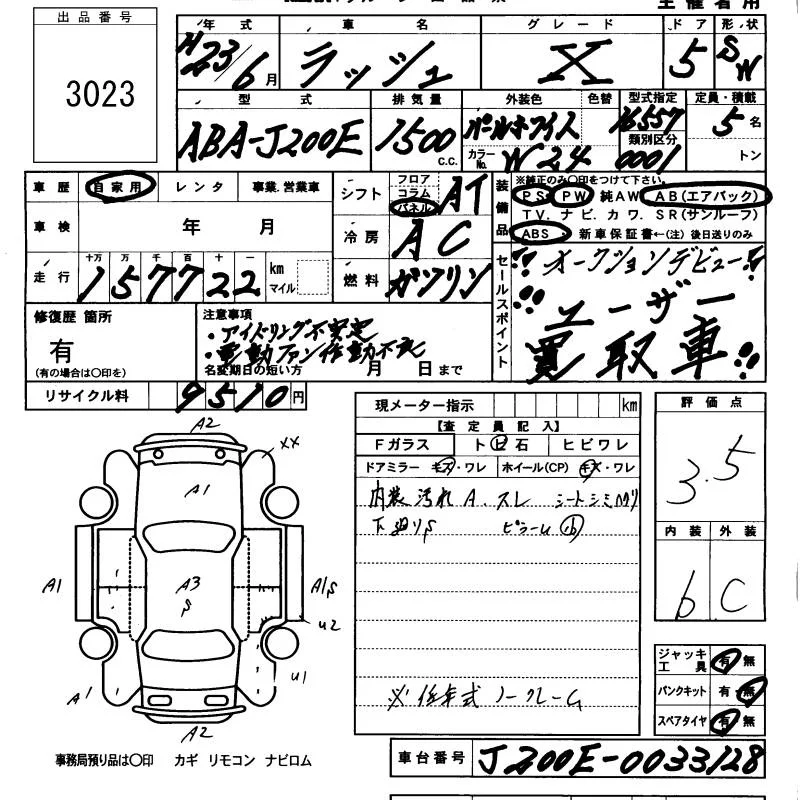 主催者用
出品番号
3023
年式 車名 グレード ドア 形状
H23/6月 ラッシュ X 5 SW
型式 排気量 外装色 色替 型式指定 定員・積載
ABA-J200E 1500 c.c. パールホワイト 16557 5名
カラーNo. W24 類別区分 0001 トン
車歴 自家用 レンタ 事業.営業車
車検 年 月
走行 十万 万 千 百 十 一 km マイル
157722
シフト フロア コラム パネル AT
冷房 AC
燃料 ガソリン
装備品
※純正のみ〇印をつけて下さい。
PS PW 純AW AB(エアバック)
TV. ナビ. カワ. SR(サンルーフ)
ABS・新車保証書←(注) 後日送りのみ
セールスポイント
!! オークションデビュー!!
!! ユーザー
買取車!!
修復歴 箇所
有
(有の場合は〇印を)
注意事項
・アイドリング不安定
・電動ファン作動不良
名変期日の短い方 月 日まで
リサイクル料 9510円
現メーター指示 km
【査定員記入】
Fガラス トビ石 ヒビワレ
ドアミラー キズ・ワレ ホイール(CP) キズ・ワレ
内装汚れ A. スレ シートシミ
下廻りS
※ 低年式 ノークレーム
評価点
3.5
内装 外装
b C
ジャッキ工具 有 無
パンクキット 有 無
スペアタイヤ 有 無
A2
XX
A1
A1
A3
S
A1S
U2
A1
U1
A2
事務局預り品は〇印 カギ リモコン ナビロム
車台番号 J200E-0033128